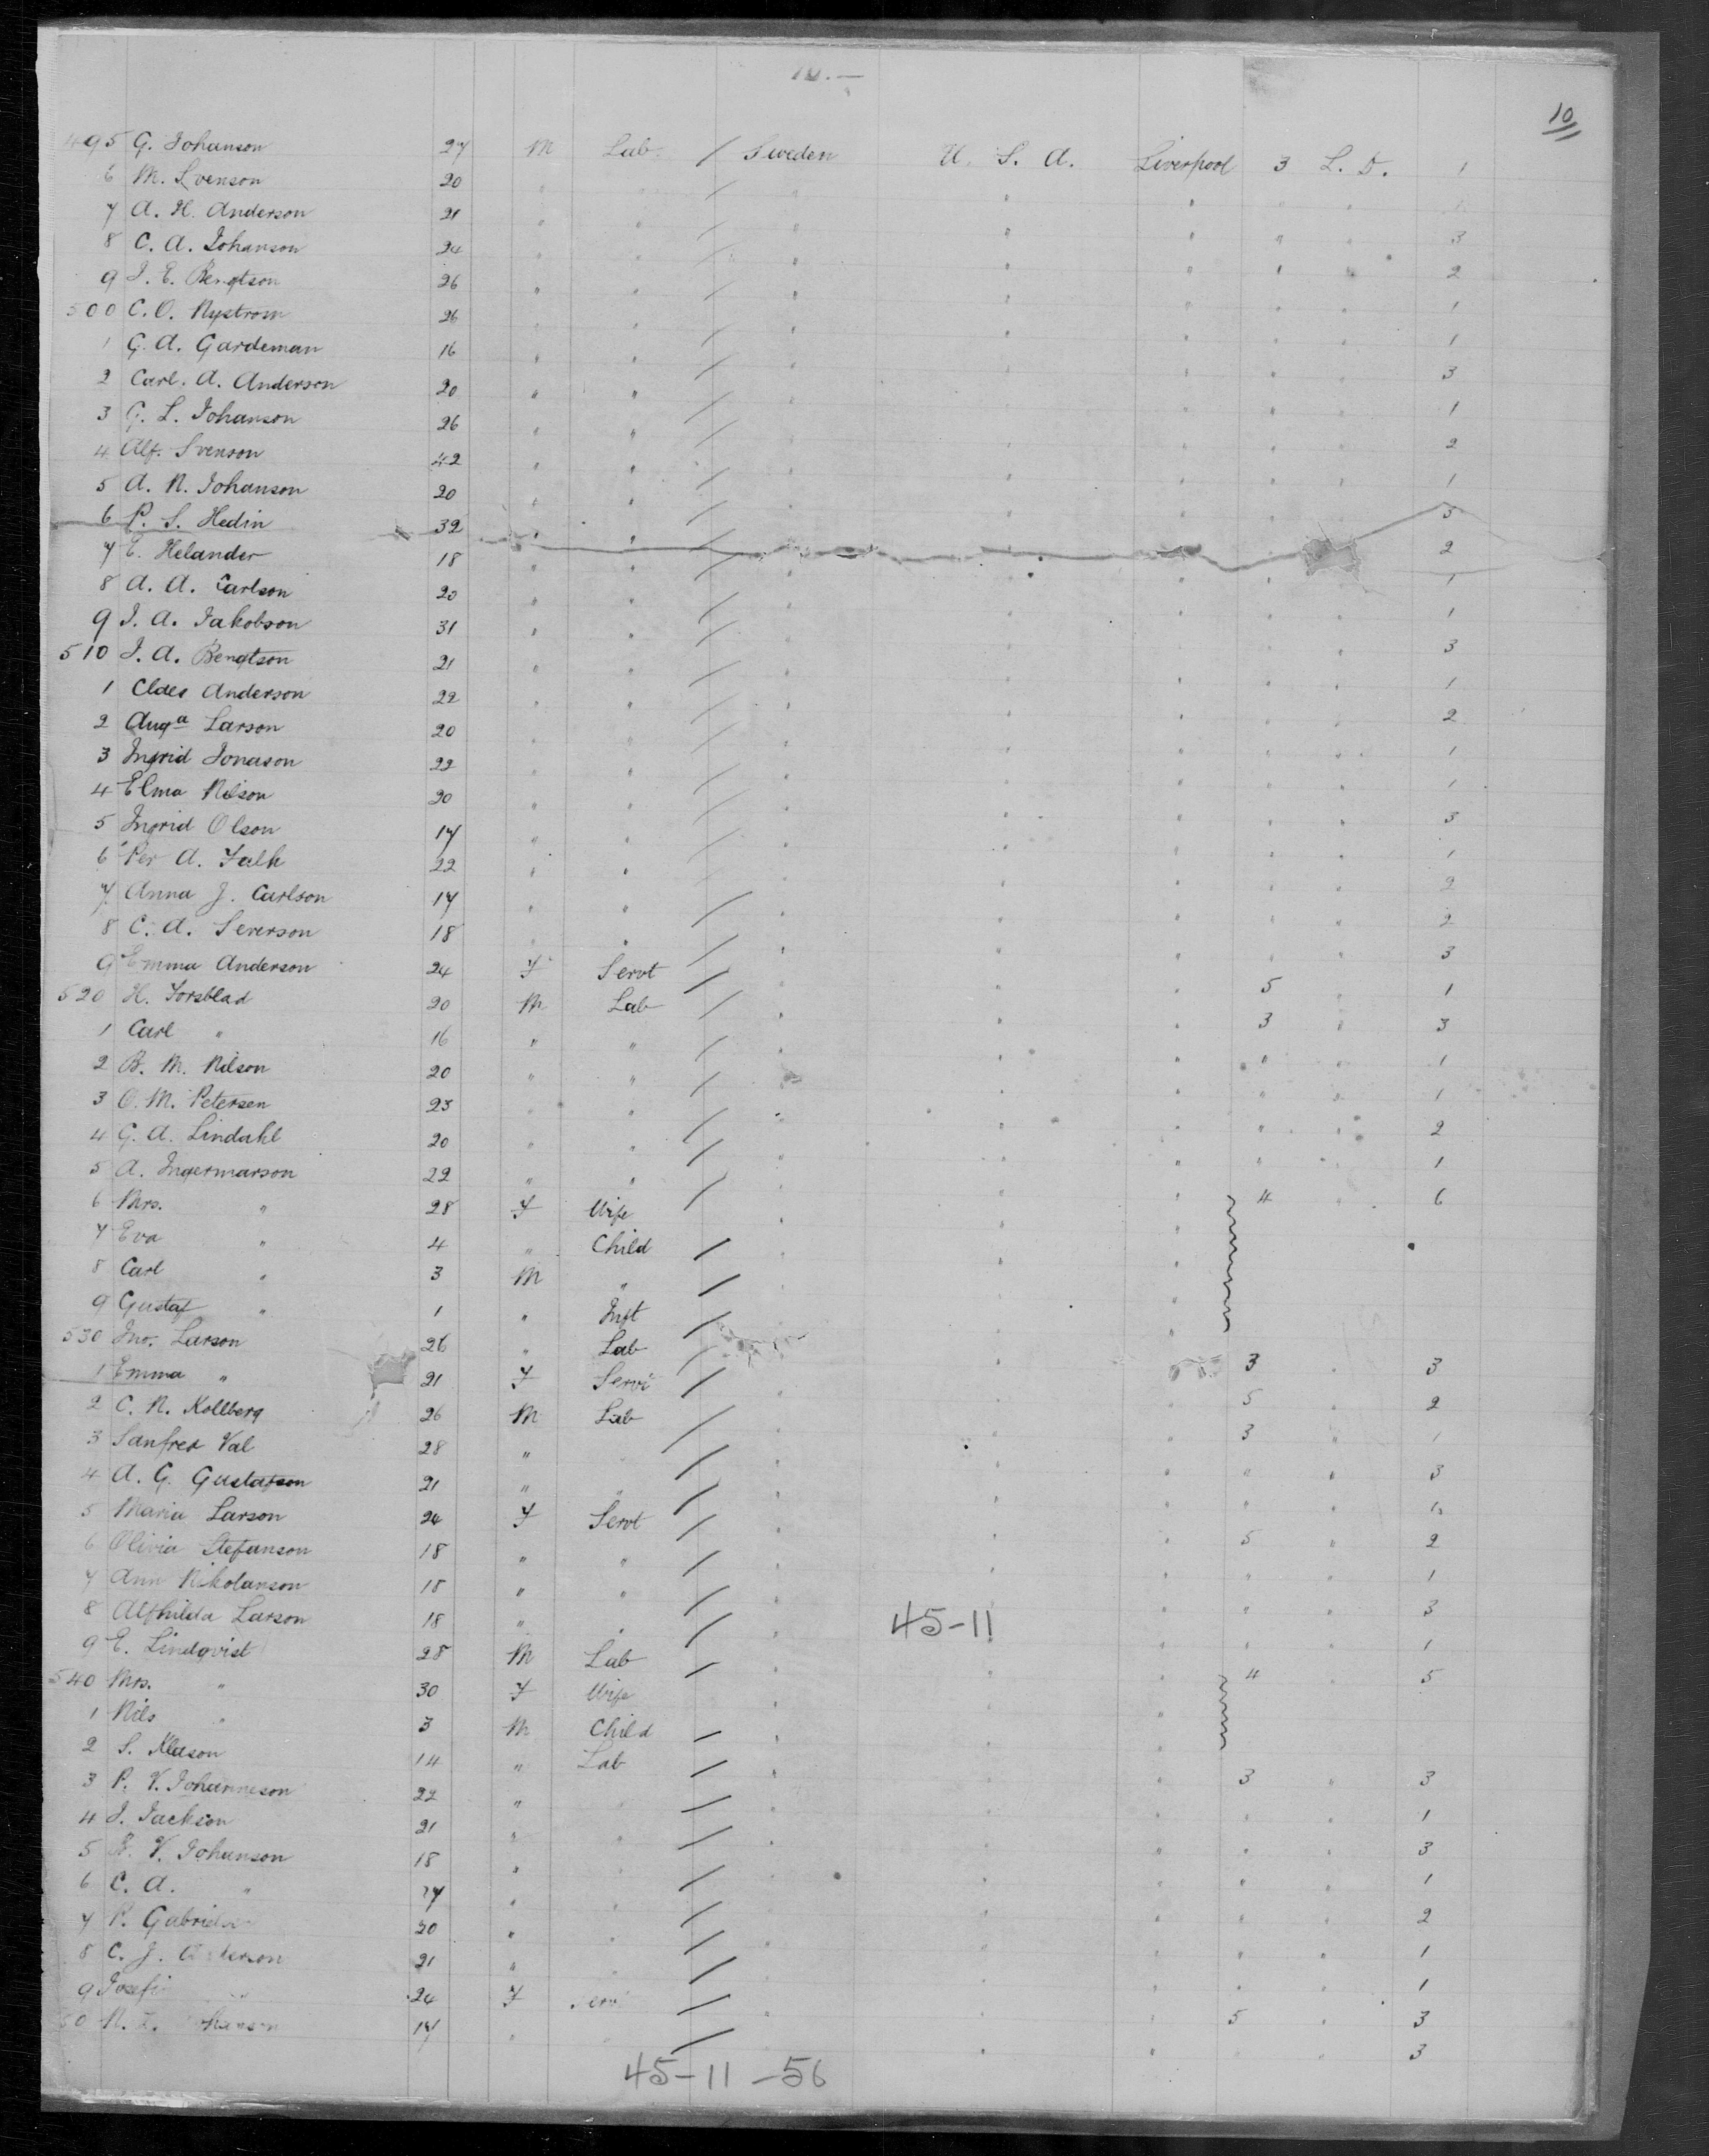 10.—
10
495 G. Johanson 27 M Lab. / Sweden U. S. A. Liverpool 3 L. D. 1
6 M. Svenson 20 " " / " " " " "
7 A. H. Anderson 21 " " / " " " " " 3
8 C. A. Johanson 24 " " / " " " " " 2
9 J. E. Bengtson 26 " " / " " " " " 1
500 C. O. Nystrom 26 " " / " " " " " 1
1 G. A. Gardeman 16 " " / " " " " " 3
2 Carl. A. Anderson 20 " " / " " " " " 1
3 G. L. Johanson 26 " " / " " " " " 2
4 Alf. Svenson 42 " " / " " " " " 1
5 A. N. Johanson 20 " " / " " " " " 3
6 P. S. Hedin 32 " " / " " " " " 2
7 E. Helander 18 " " / " " " " " 1
8 A. A. Carlson 20 " " / " " " " " 1
9 J. A. Jakobson 31 " " / " " " " " 3
510 J. A. Bengtson 21 " " / " " " " " 1
1 Claes Anderson 22 " " / " " " " " 2
2 Auga Larson 20 " " / " " " " " 1
3 Ingrid Jonason 22 " " / " " " " " 1
4 Elma Nilson 20 " " / " " " " " 3
5 Ingrid Olson 17 " " / " " " " " 1
6 Per A. Falk 22 " " / " " " " " 2
7 Anna J. Carlson 17 " " / " " " " " 2
8 C. A. Severson 18 " " / " " " " " 3
9 Emma Anderson 24 F Servt / " " " 5 " 1
520 H. Forsblad 20 M Lab / " " " 3 " 3
1 Carl " 16 " " / " " " " " 1
2 B. M. Nilson 20 " " / " " " " " 1
3 O. M. Petersen 23 " " / " " " " " 2
4 G. A. Lindahl 20 " " / " " " " " 1
5 A. Ingermarson 22 " " / " " " 4 " 6
6 Mrs. " 28 F Wife " " "
7 Eva " 4 " Child / " " "
8 Carl " 3 M " / " " "
9 Gustaf " 1 " Inft / " " "
530 Jno. Larson 26 " Lab / " " 3 " 3
1 Emma " 21 F Servt / " " " 5 " 2
2 C. N. Kollberg 26 M Lab / " " " 3 " 1
3 Sanfred Val 28 " " / " " " " " 3
4 A. G. Gustafson 21 " " / " " " " " 1
5 Maria Larson 24 F Servt / " " " 5 " 2
6 Olivia Stefanson 18 " " / " " " " " 1
7 Ann Nikolanson 18 " " / " " " " " 3
8 Alfhilda Larson 18 " " / " 45-11 " " " 1
9 E. Lindqvist 28 M Lab / " " " 4 " 5
540 Mrs. " 30 F Wife " "
1 Nils " 3 M Child / " "
2 S. Klason 14 " Lab / " " " 3 " 3
3 P. V. Johanneson 22 " / " " " " " 1
4 J. Jackson 21 " " / " " " " " 3
5 V. Johanson 18 " " / " " " " " 1
6 C. A. " " " / " " " " " 2
7 P. 20 " / " " " " " 1
8 C. J. 21 " / " " " " " 1
9 " 24 F / " " " 5 " 3
N. 17 " / " " " " " 3
45-11-56